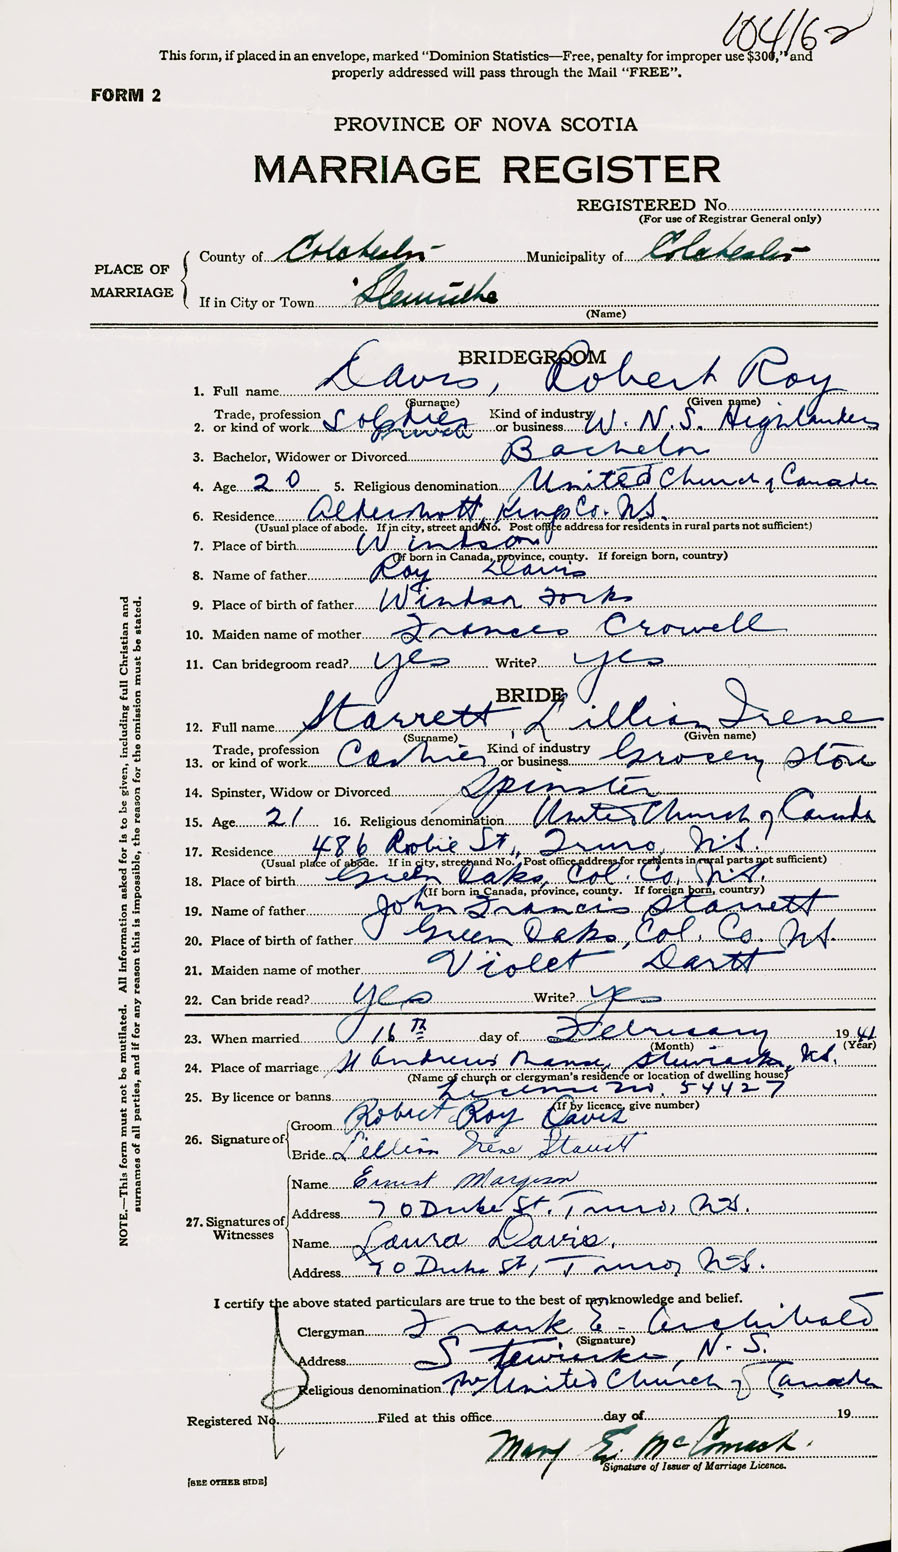 104162
This form, if placed in an envelope, marked "Dominion Statistics—Free, penalty for improper use $300," and
properly addressed will pass through the Mail "FREE".
FORM 2
PROVINCE OF NOVA SCOTIA
MARRIAGE REGISTER
REGISTERED No.
(For use of Registrar General only)
PLACE OF MARRIAGE
County of Colchester Municipality of Colchester
If in City or Town Stewiacke
(Name)
BRIDEGROOM
1. Full name Davis, Robert Roy
(Surname) (Given name)
2. Trade, profession or kind of work Soldier Kind of industry or business W. N. S. Highlanders
3. Bachelor, Widower or Divorced Bachelor
4. Age 20 5. Religious denomination United Church of Canada
6. Residence Aldershott, Kings Co. N.S.
(Usual place of abode. If in city, street and No. Post office address for residents in rural parts not sufficient)
7. Place of birth Windsor
(If born in Canada, province, county. If foreign born, country)
8. Name of father Roy Davis
9. Place of birth of father Windsor Forks
10. Maiden name of mother Frances Crowell
11. Can bridegroom read? yes Write? yes
BRIDE
12. Full name Starrett, Lillian Irene
(Surname) (Given name)
13. Trade, profession or kind of work Cashier Kind of industry or business Grocery Store
14. Spinster, Widow or Divorced Spinster
15. Age 21 16. Religious denomination United Church of Canada
17. Residence 486 Robie St, Truro, N.S.
(Usual place of abode. If in city, street and No. Post office address for residents in rural parts not sufficient)
18. Place of birth Green Oaks, Col. Co, N.S.
(If born in Canada, province, county. If foreign born, country)
19. Name of father John Francis Starrett
20. Place of birth of father Green Oaks, Col. Co. N.S.
21. Maiden name of mother Violet Dartt
22. Can bride read? yes Write? yes
23. When married 16th day of February 1941
(Month) (Year)
24. Place of marriage St Andrews Manse, Stewiacke, N.S.
(Name of church or clergyman's residence or location of dwelling house)
25. By licence or banns License no. 54427
(If by licence, give number)
26. Signature of Groom Robert Roy Davis
Bride Lillian Irene Starrett
27. Signatures of Witnesses
Name Ernest Margeson
Address 70 Duke St. Truro, N.S.
Name Laura Davis.
Address 70 Duke St, Truro, N.S.
I certify the above stated particulars are true to the best of my knowledge and belief.
Clergyman Frank E. Archibald
(Signature)
Address Stewiacke, N.S.
Religious denomination United Church of Canada
Registered No. Filed at this office day of 19
Mary E. McComack.
Signature of Issuer of Marriage Licence.
[SEE OTHER SIDE]
NOTE.—This form must not be mutilated. All information asked for is to be given, including full Christian and
surnames of all parties, and if for any reason this is impossible, the reason for the omission must be stated.